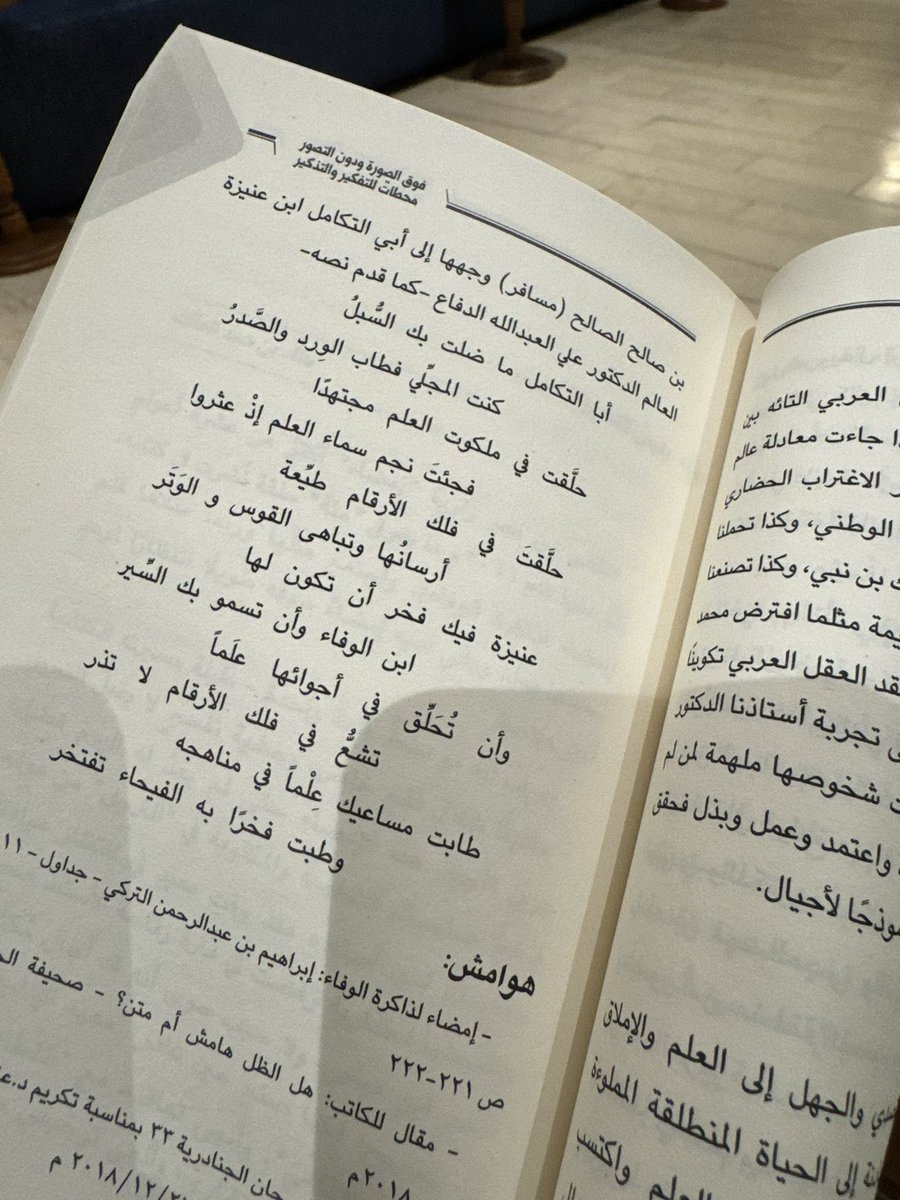 فوق الصورة ودون التصور
محطات للتفكير والتذكير
بن صالح الصالح (مسافر) وجهها إلى أبي التكامل ابن عنيزة
العالم الدكتور علي العبدالله الدفاع -كما قدم نصه-
أبا التكامل ما ضلت بك السُّبلُ
كنت المجلّي فطاب الوِرد والصَّدرُ
حلَّقت في ملكوت العلم مجتهدًا
فجئتَ نجم سماء العلم إذْ عثروا
حلَّقتَ في فلك الأرقام طيِّعة
أرسانُها وتباهى القوس و الوَتَر
عنيزة فيك فخر أن تكون لها
ابن الوفاء وأن تسمو بك السِّير
وأن تُحَلِّق في أجوائها علَماً
تشعُّ في فلك الأرقام لا تذر
طابت مساعيك عِلْماً في مناهجه
وطبت فخرًا به الفيحاء تفتخر
هوامش:
- إمضاء لذاكرة الوفاء: إبراهيم بن عبدالرحمن التركي - جداول - ١١
ص ٢٢١-٢٢٢
- مقال للكاتب: هل الظل هامش أم متن؟ - صحيفة
٢٠١٨م
الجنادرية ٣٣ بمناسبة تكريم
٢٠١٨/١٢/ م
العربي التائه بين
جاءت معادلة عالم
الاغتراب الحضاري
الوطني، وكذا تحملنا
بن نبي، وكذا تصنعنا
مثلما افترض محمد
العقل العربي تكوينًا
تجربة أستاذنا الدكتور
شخوصها ملهمة لمن لم
واعتمد وعمل وبذل فحقق
لأجيال.
والجهل إلى العلم والإملاق
إلى الحياة المنطلقة المملوءة
العلم واكتسب